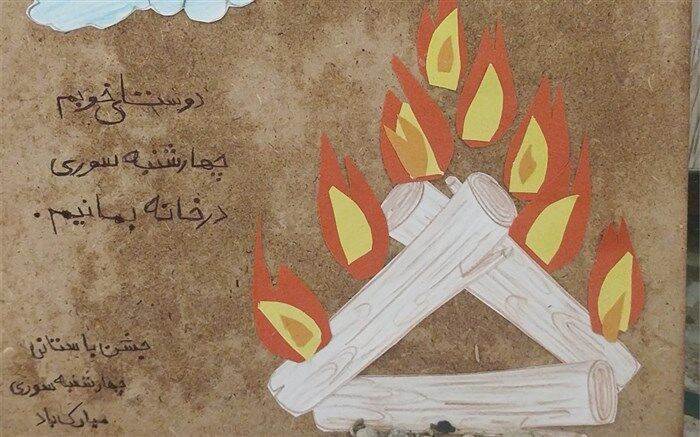 دوستای خوبم
چهارشنبه سوری
درخانه بمانیم.
جشن باستانی
چهارشنبه سوری
مبارک باد